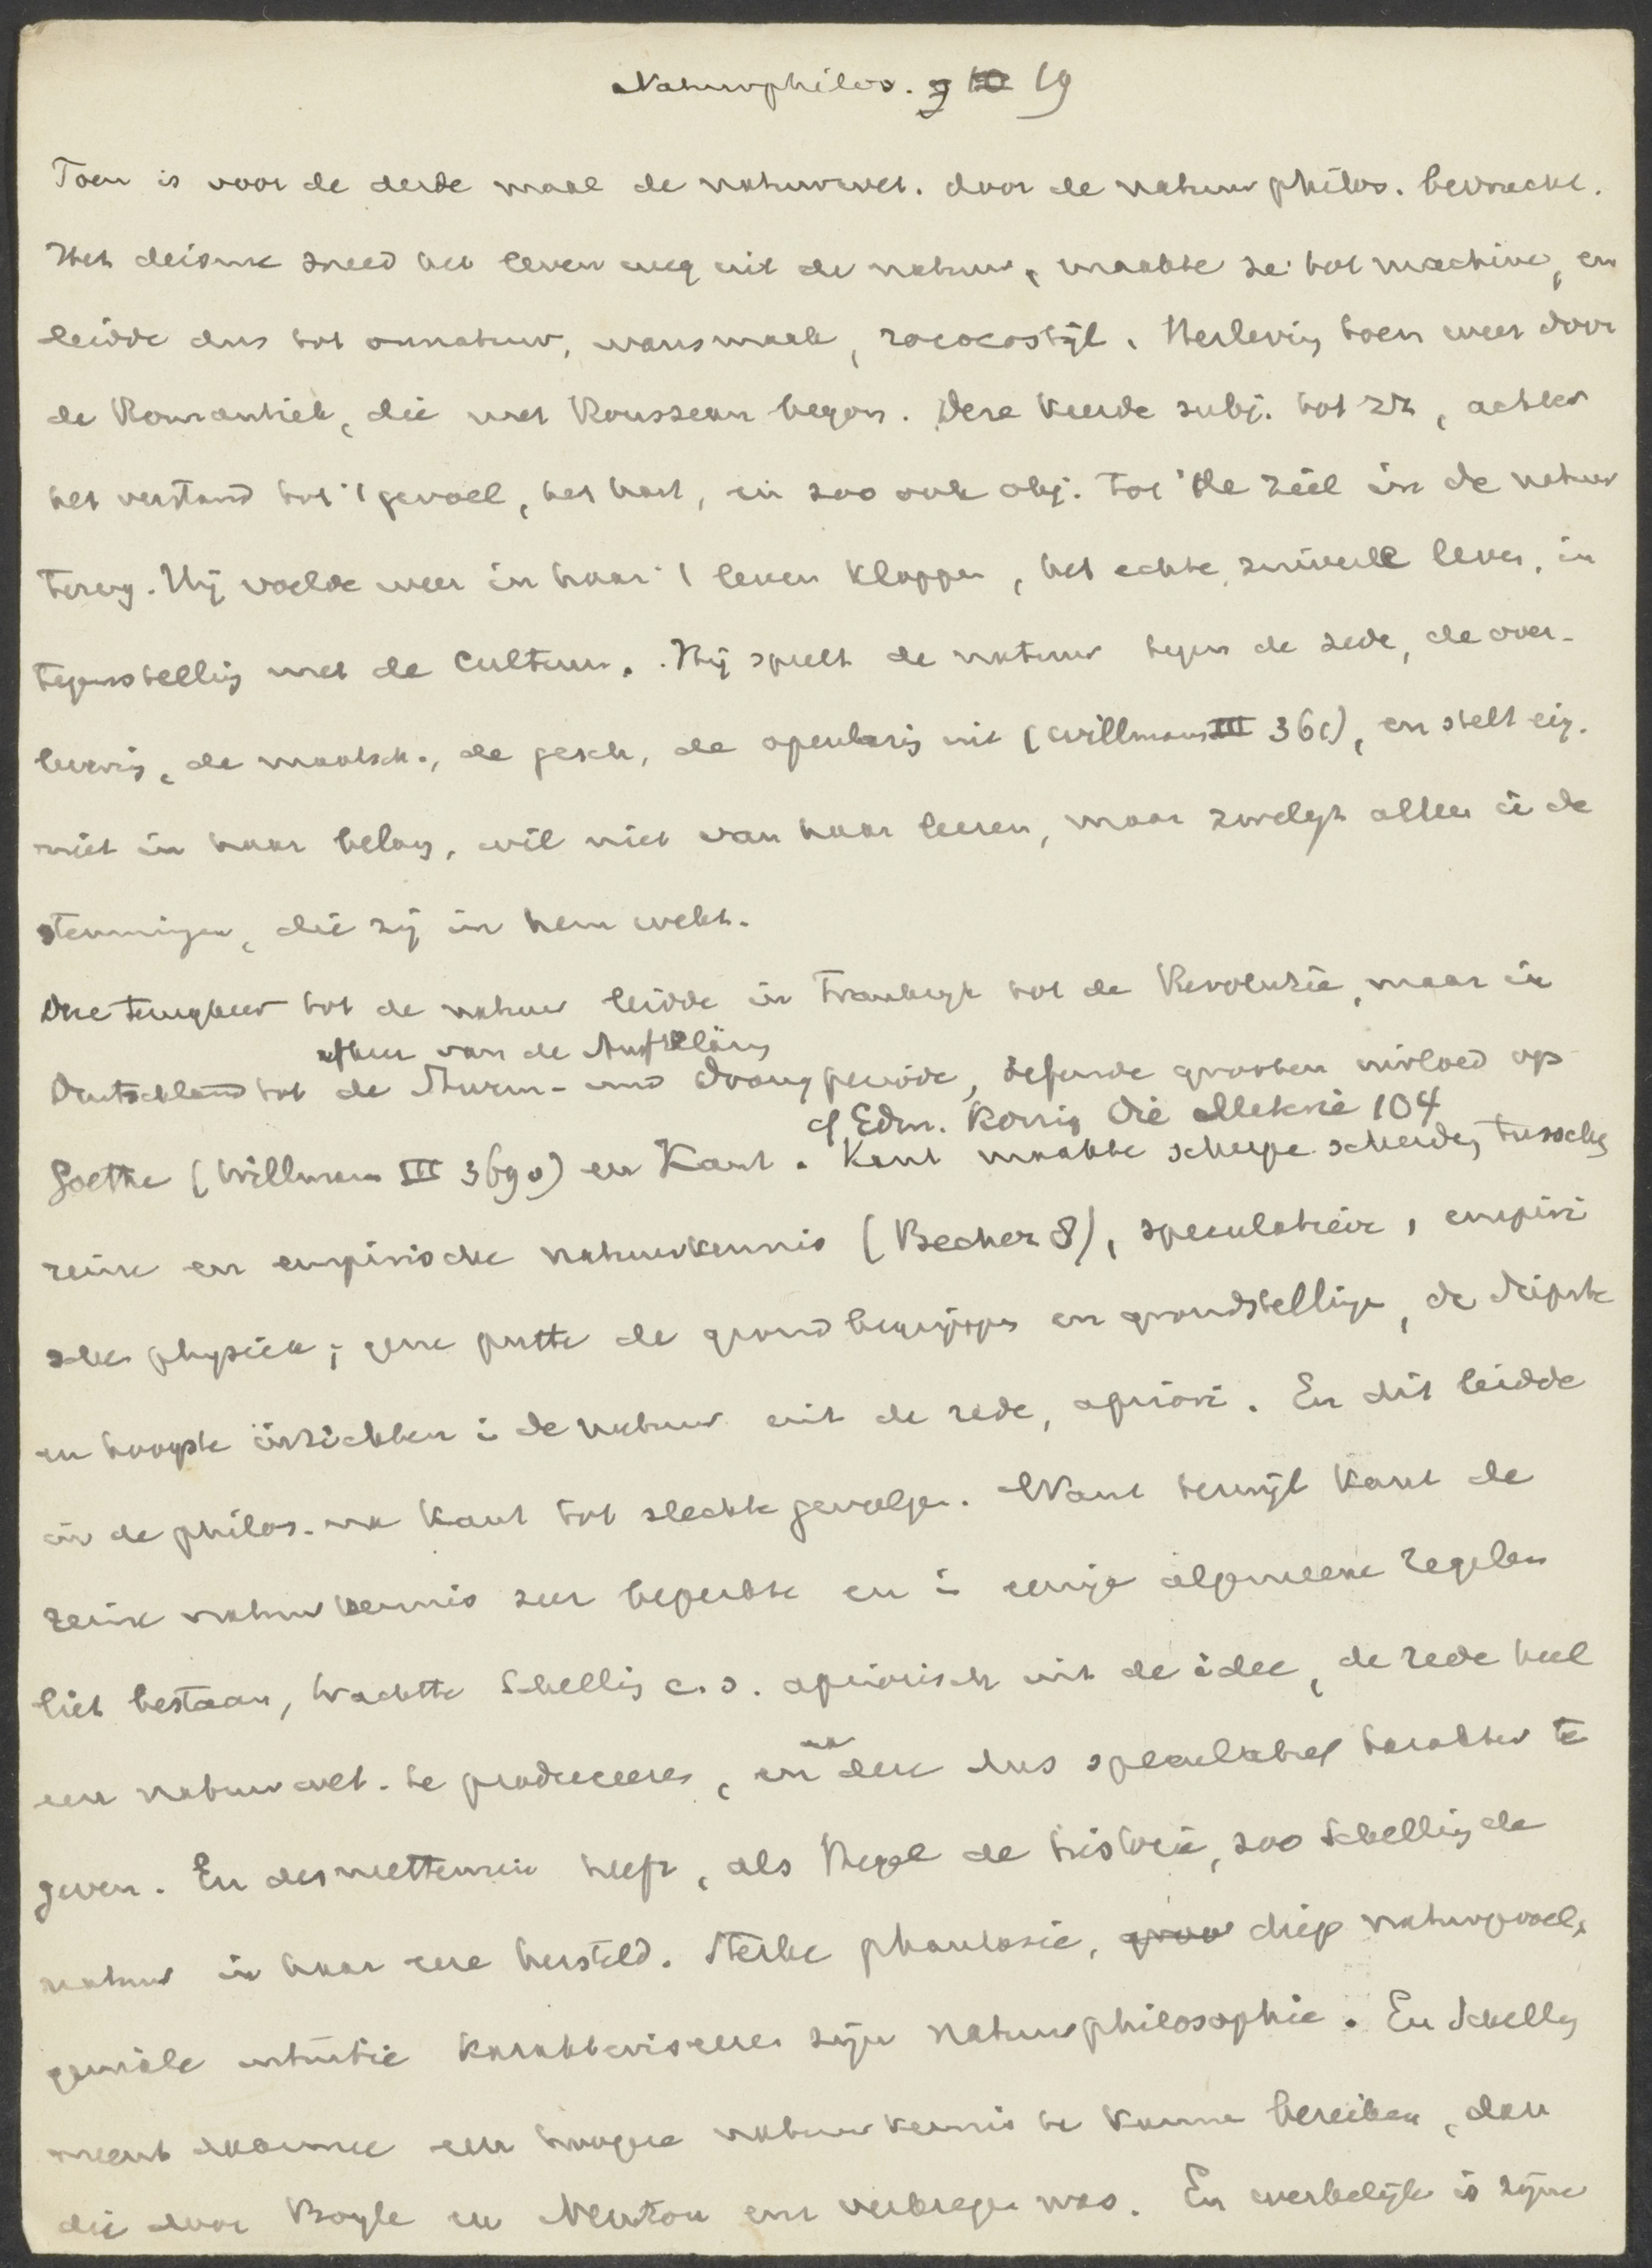 Naturphilos. 9 10 19
Toen is voor de derde maal de natuurwet. door de natuurphilos. bevrucht.
Het deisme sneed het leven weg uit de natuur, maakte ze tot machine, en
leidde dus tot onnatuur, wansmaak, rococostijl. Herleving toen weer door
de Romantiek, die met Rousseau begon. Deze keerde subj. tot zich, achter
het verstand tot 't gevoel, het hart, en zoo ook obj. tot de ziel in de natuur
terug. Hij voelde weer in haar 't leven kloppen, het echte, zuivere leven, in
tegenstelling met de Cultuur. Hij speelt de natuur tegen de zede, de over-
levering, de maatsch., de gesch., de openbaring uit (Willmann III 361), en stelt eig.
niet in haar belang, wil niet van haar leeren, maar zwelgt alleen in de
stemmingen, die zij in hem wekt.
Deze terugkeer tot de natuur leidde in Frankrijk tot de Revolutie, maar in
afkeer van de Aufklärung
Deutschland tot de Sturm- und Drangperiode, oefende grooten invloed op
cf Edm. König Die Materie 104
Goethe (Willmann III 369v) en Kant. Kant maakte scherpe scheiding tusschen
reine en empirische natuurkennis (Becher 8), speculatieve, empiri
sche physiek; gene putte de grondbegrippen en grondstellingen, de diepste
en hoogste inzichten in de natuur uit de rede, apriori. En dit leidde
in de philos. na Kant tot slechte gevolgen. Want terwijl Kant de
reine natuurkennis zeer beperkte en in eenige algemeene regelen
liet bestaan, trachtte Schelling c.s. apriorisch uit de idee, de rede heel
een natuurwet. te produceeren, en deze dus speculatief karakter te
geven. En desniettemin heeft, als Hegel de historie, zoo Schelling de
natuur in haar eere hersteld. Sterke phantasie, groo diep natuurgevoel,
geniale intuitie karakteriseeren zijn natuurphilosophie. En Schelling
meent daarmee een hoogere natuurkennis te kunnen bereiken, dan
die door Boyle en Newton enz verkregen was. En werkelijk is zijne